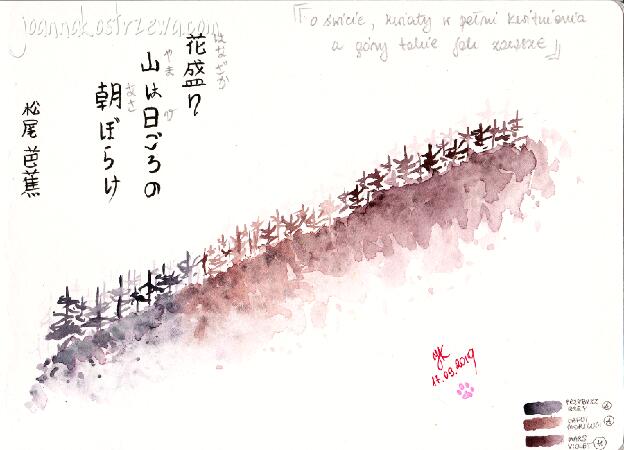 joannakostrzewa.com
『o świcie, kwiaty w pełni kwitnienia
a góry takie jak zawsze』
はなざか
花盛り
やま ひ
山は日ごろの
あさ
朝ぼらけ
松尾芭蕉
JK
17.09.2019
GREY
MARS
VIOLET